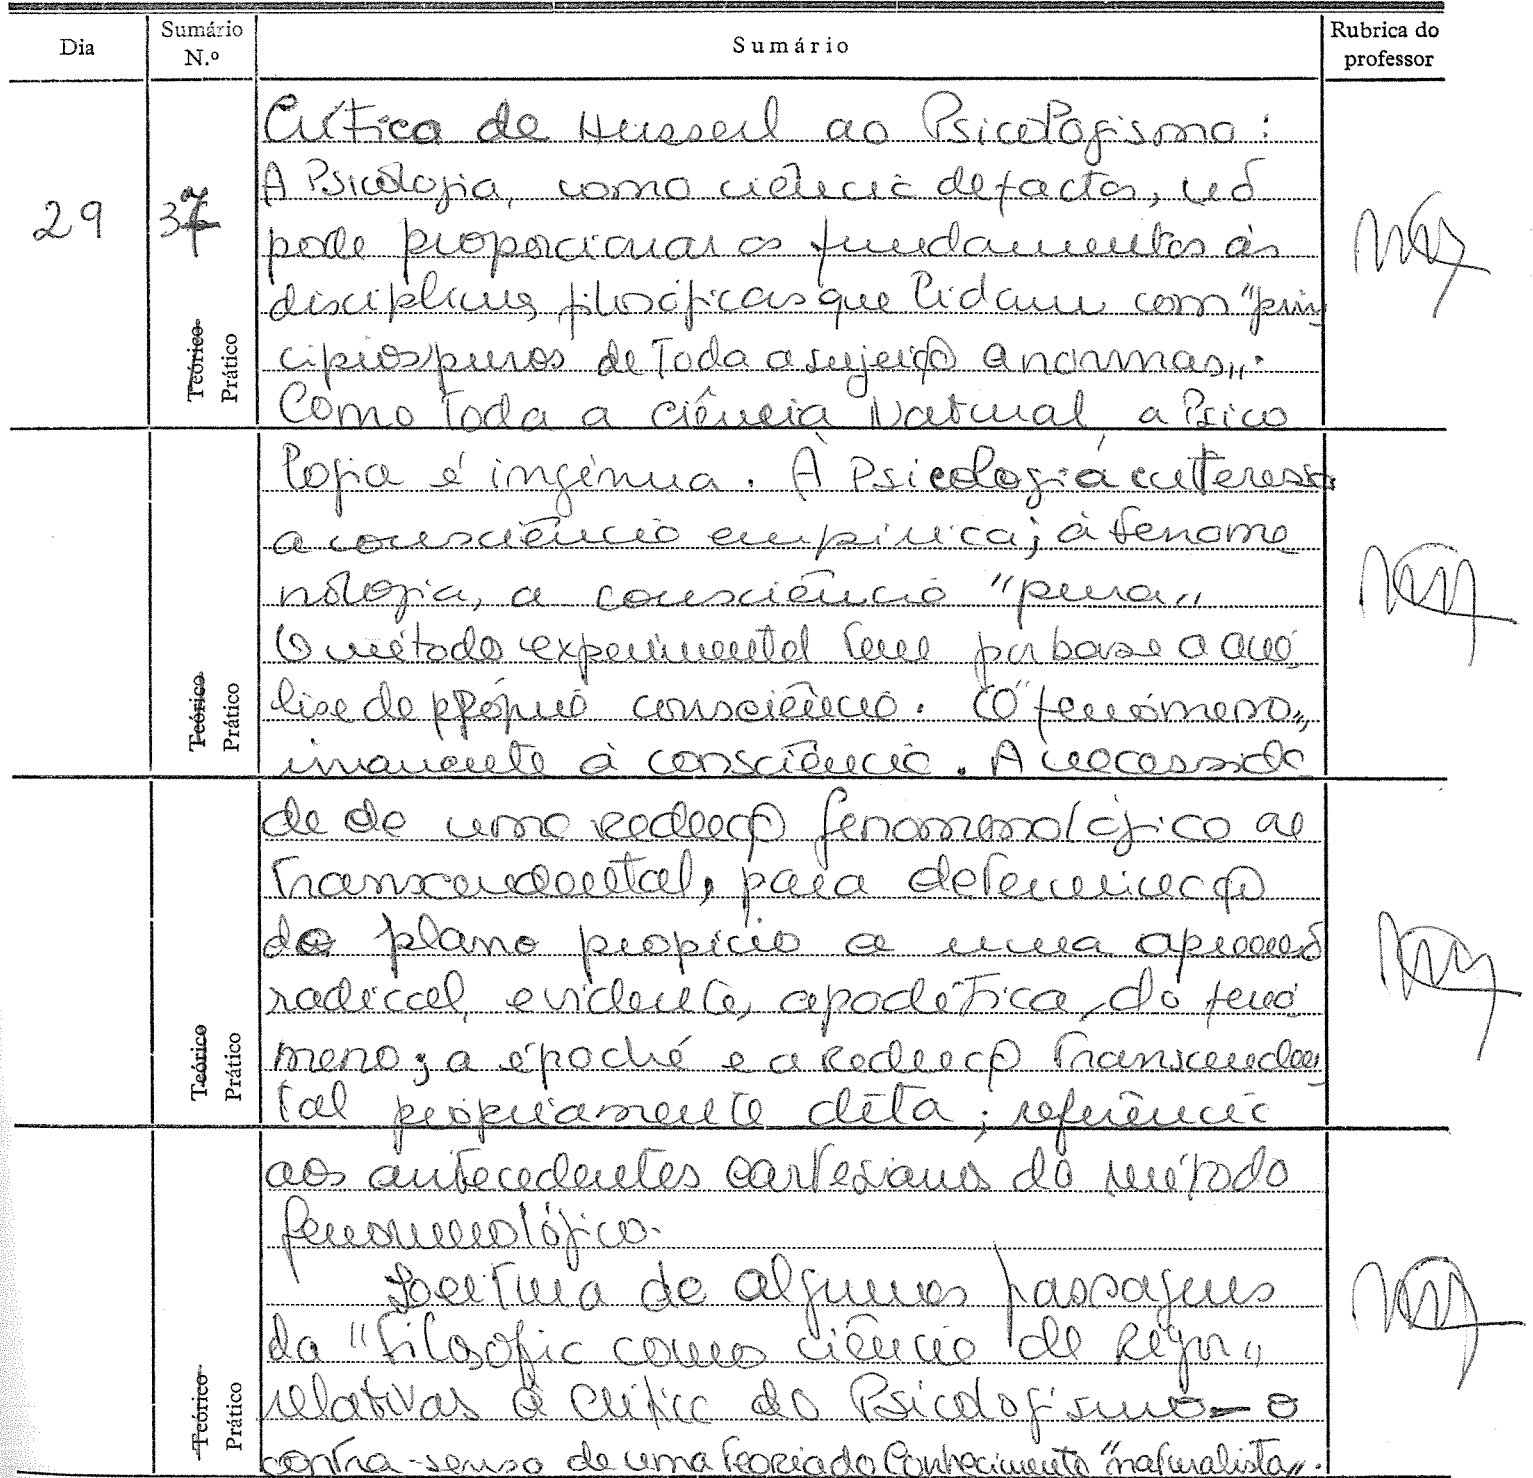 Dia
Sumário
N.º
Sumário
Rubrica do
professor
29
37
Teórico
Prático
Crítica de Husserl ao Psicologismo:
A Psicologia, como ciência de factos, não
pode proporcionar os fundamentos às
disciplinas filosóficas que lidam com "prin
cípios puros de toda a sujeição a normas".
Como toda a Ciência Natural a Psico
logia é ingénua. À Psicologia interessa
a consciência empírica; à fenome
nologia, a consciência "pura"
O método experimental tem por base a aná
lise da própria consciência. O "fenómeno",
imanente à consciência. A necessida
Teórico
Prático
de de uma redução fenomenológico
transcendental, para determinação
do plano propício a uma apreensão
radical, evidente, apodítica, do fenó
meno; a époché e a redução transcenden
tal propriamente dita; referência
Teórico
Prático
aos antecedentes cartesianos do método
fenomenológico.
Leitura de algumas passagens
da "Filosofia como ciência de rigor"
relativas à crítica do Psicologismo - o
contra-senso de uma teoria do Conhecimento "naturalista".
Teórico
Prático